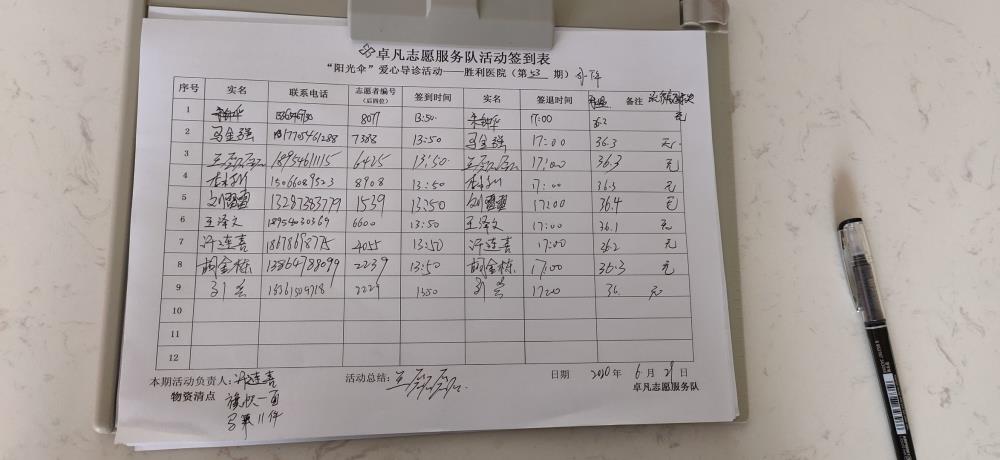 卓凡志愿服务队活动签到表
“阳光伞”爱心导诊活动——胜利医院（第53期）
序号 实名 联系电话 志愿者编号（后四位） 签到时间 实名 签退时间 备注
1 8077 13:50 17:00 36.2 无
2 马金强 17705461288 7388 13:50 马金强 17:00 36.3 无
3 18954611115 6425 13:50 17:00 36.3 无
4 15066089523 8908 13:50 17:00 36.3 无
5 13287383779 1539 13:50 17:00 36.4 无
6 王泽文 18954030369 6600 13:50 王泽文 17:00 36.1 无
7 许连喜 4055 13:50 许连喜 17:00 36.2 无
8 胡金栋 13864788099 2239 13:50 胡金栋 17:00 36.3 无
9 2229 1350 1700 36. 无
10
11
12
本期活动负责人：许连喜 活动总结： 日期 2020年 6月21日
物资清点 卓凡志愿服务队
旗帜一面
11件